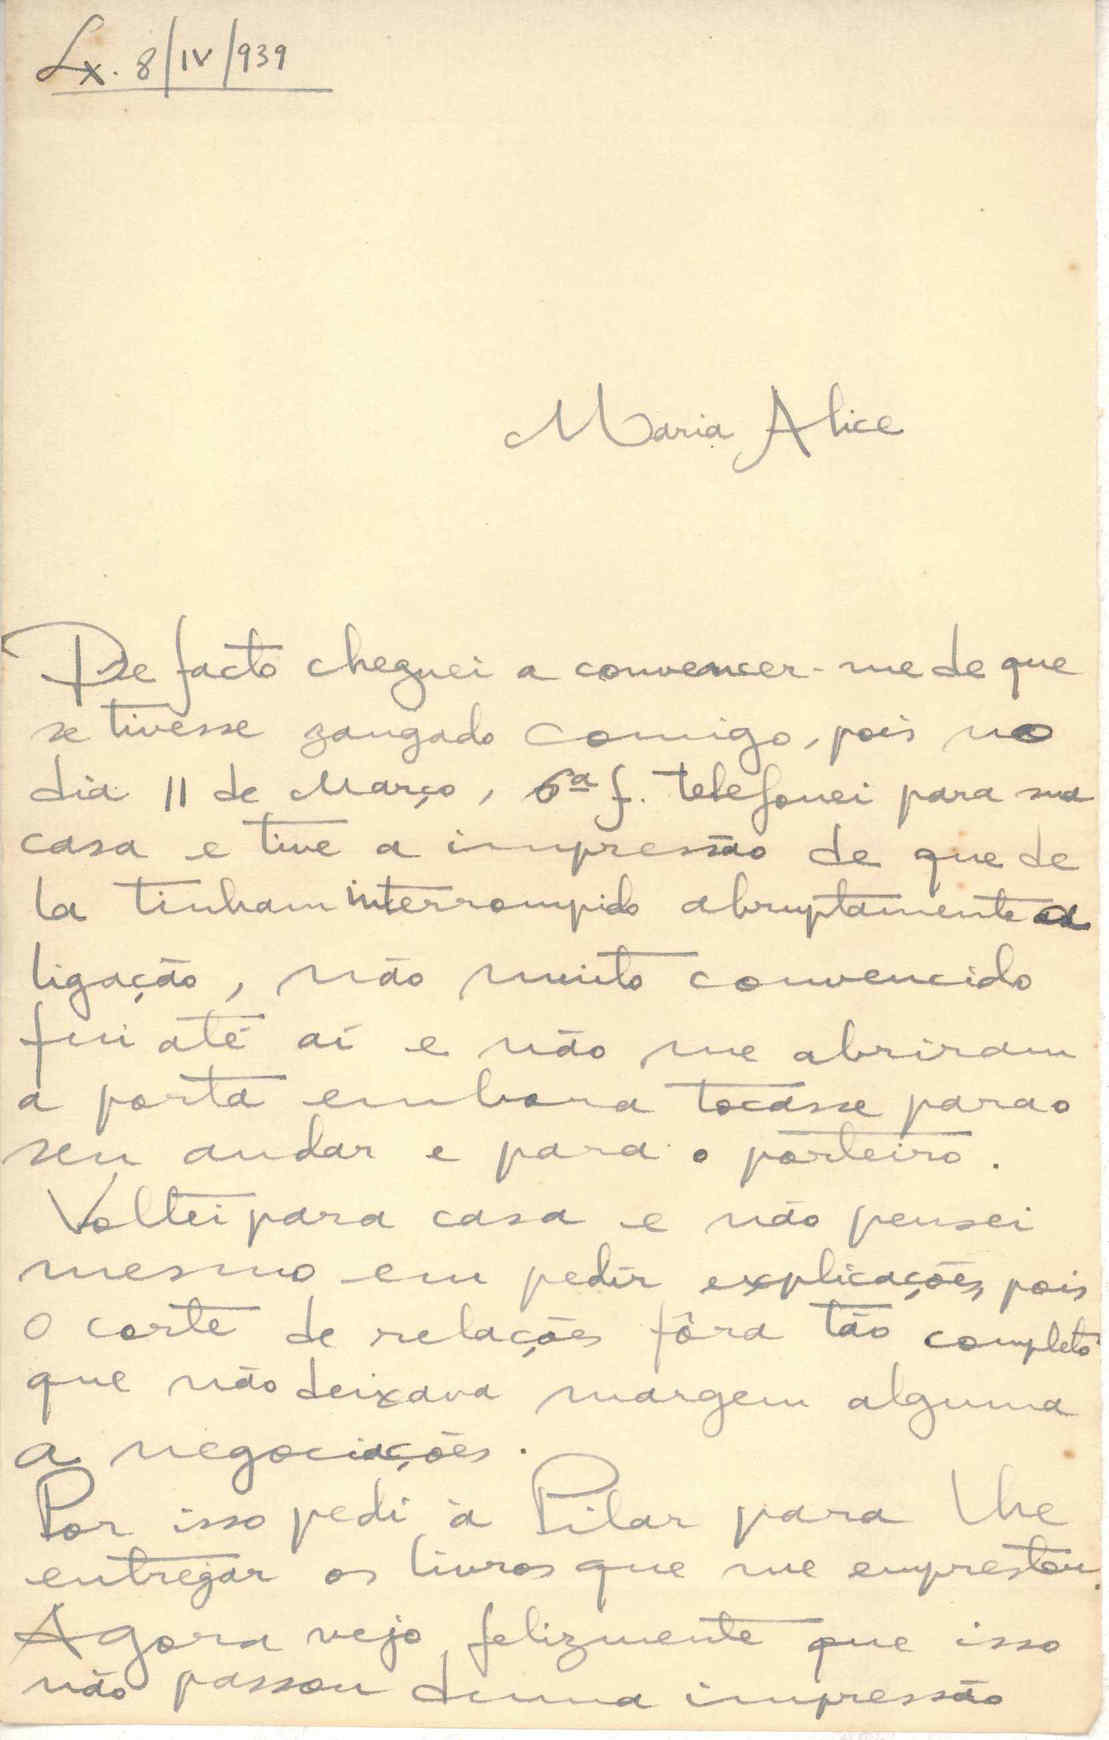 Lx. 8/IV/939
Maria Alice
De facto cheguei a convencer-me de que
se tivesse zangado comigo, pois no
dia 11 de Março, 6ª f. telefonei para sua
casa e tive a impressão de que de
la tinham interrompido abruptamente a
ligação, não muito convencido
fui até aí e não me abriram
a porta embora tocasse para o
seu andar e para o porteiro.
Voltei para casa e não pensei
mesmo em pedir explicações, pois
o corte de relações fôra tão completo
que não deixava margem alguma
a negociações.
Por isso pedi à Pilar para lhe
entregar os livros que me emprestou.
Agora vejo felizmente que isso
não passou duma impressão